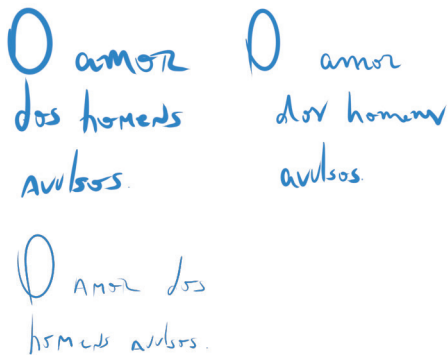 O amor
dos homens
avulsos.
O amor
dos homens
avulsos.
O amor dos
homens avulsos.